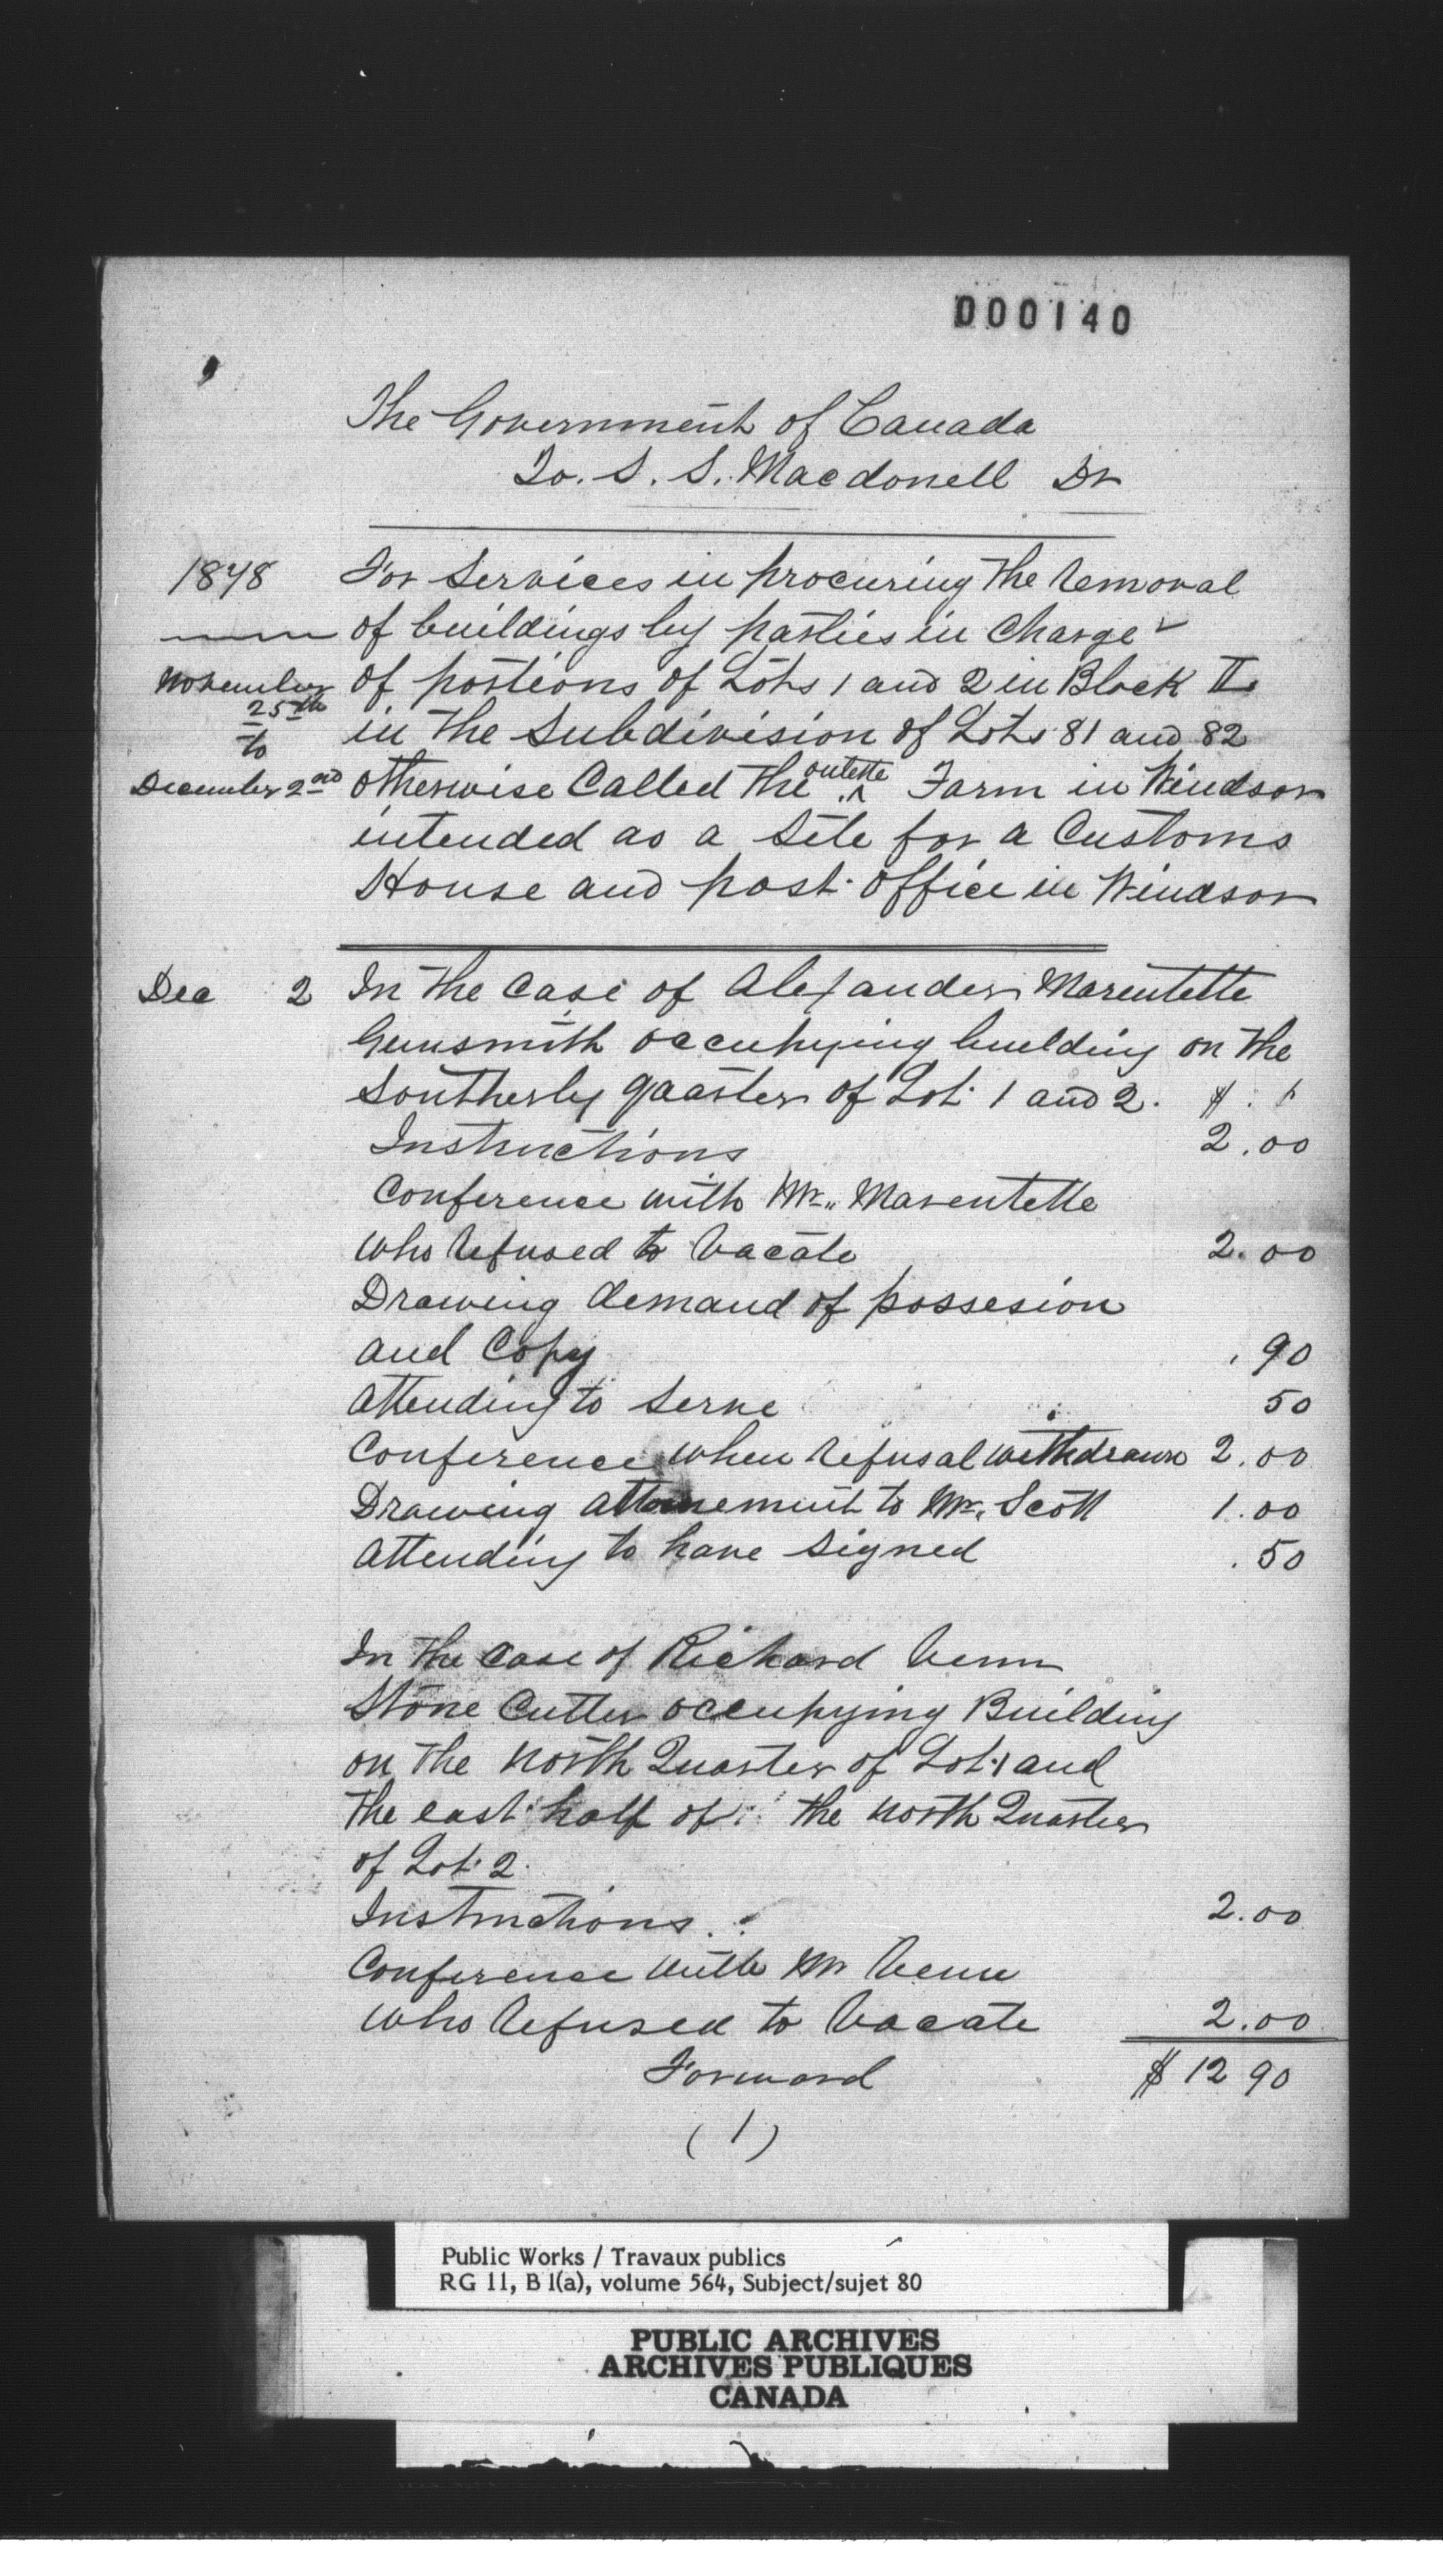 000140
The Government of Canada
To. S. S. Macdonell Dr
1878 For Services in procuring The Removal
of buildings by parties in Charge
November 25th of portions of Lots 1 and 2 in Block II
to in The Subdivision of Lots 81 and 82
December 2nd otherwise Called The ouTette Farm in Windsor
intended as a Site for a Customs
House and post office in Windsor
Dec 2 In The Case of Alexander Marentette
Gunsmith occupying building on The
Southerly quarter of Lot 1 and 2. $
Instructions 2.00
Conference with Mr. Marentette
who Refused to Vacate 2.00
Drawing demand of possesion
and Copy .90
Attending to Serve 50
Conference when Refusal withdrawn 2.00
Drawing attornement to Mr. Scott 1.00
Attending to have Signed .50
In The Case of Richard Venn
Stone Cutter occupying Building
on The North Quarter of Lot 1 and
The east half of the North Quarter
of Lot 2
Instructions 2.00
Conference with Mr Venn
who Refused to Vacate 2.00
Forward $ 12 90
(1)
Public Works / Travaux publics
RG 11, B 1(a), volume 564, Subject/sujet 80
PUBLIC ARCHIVES
ARCHIVES PUBLIQUES
CANADA